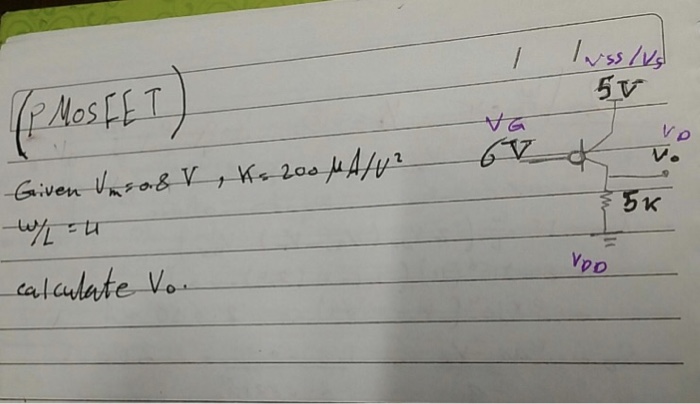 (PMOSFET)
Given Vm=0.8 V , K= 200 μA/V²
W/L = 4
calculate Vo.
VSS/VS
5V
VG
6V
VD
Vo
5K
VDD